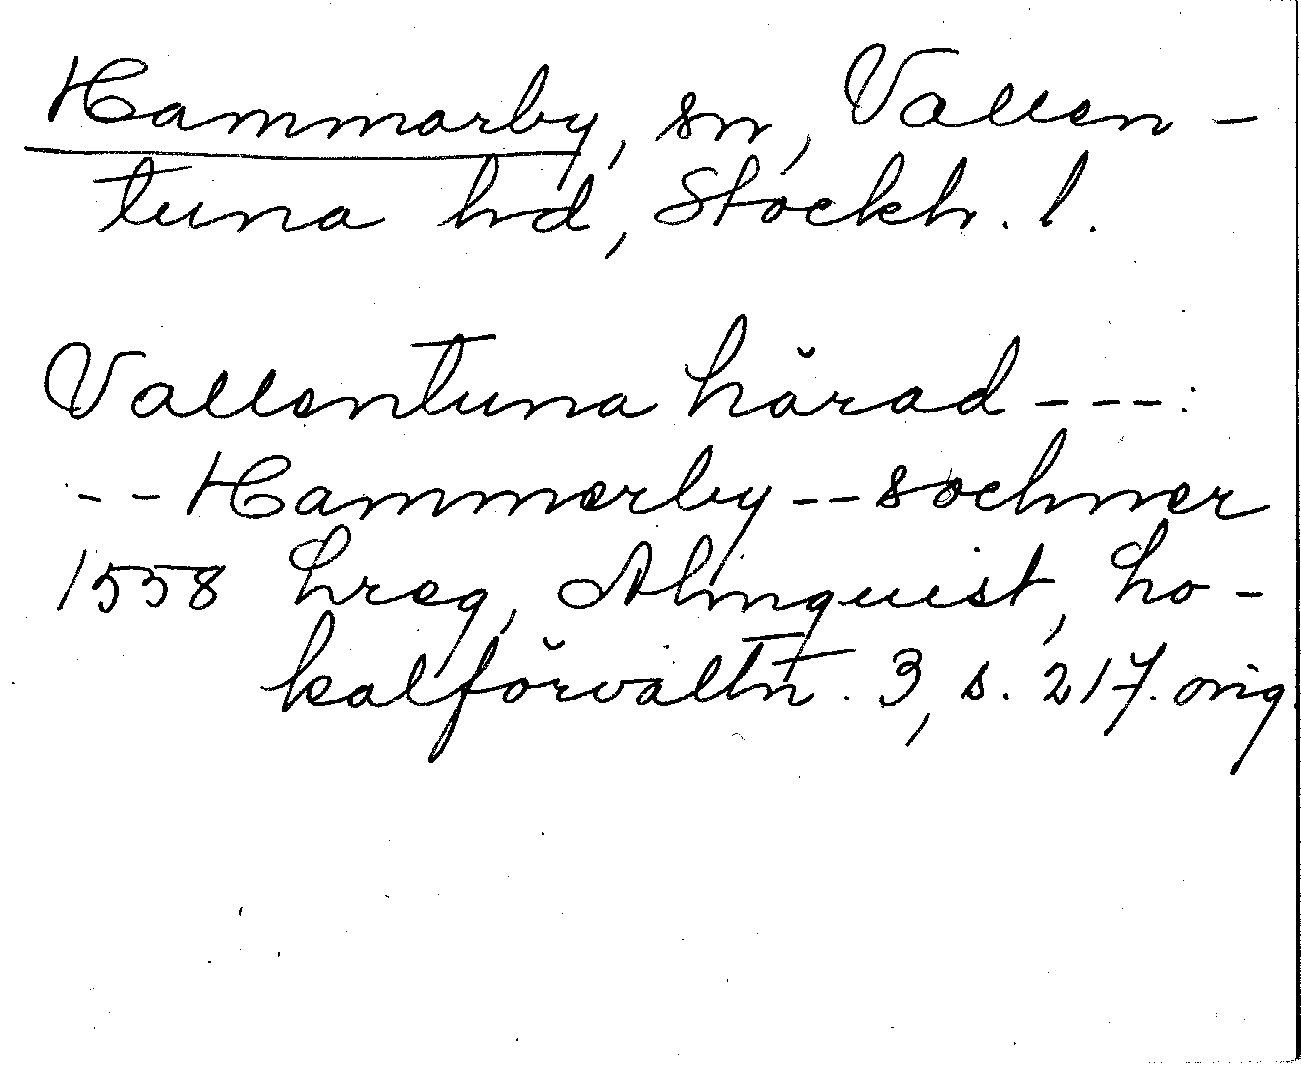 Hammarby, sn, Vallen-
tuna hd, Stockh. l.
Vallentuna härad ---:
-- Hammerby -- sochner
1558 hreg, Almquist, Lo-
kalförvaltn. 3, s. 217. orig.